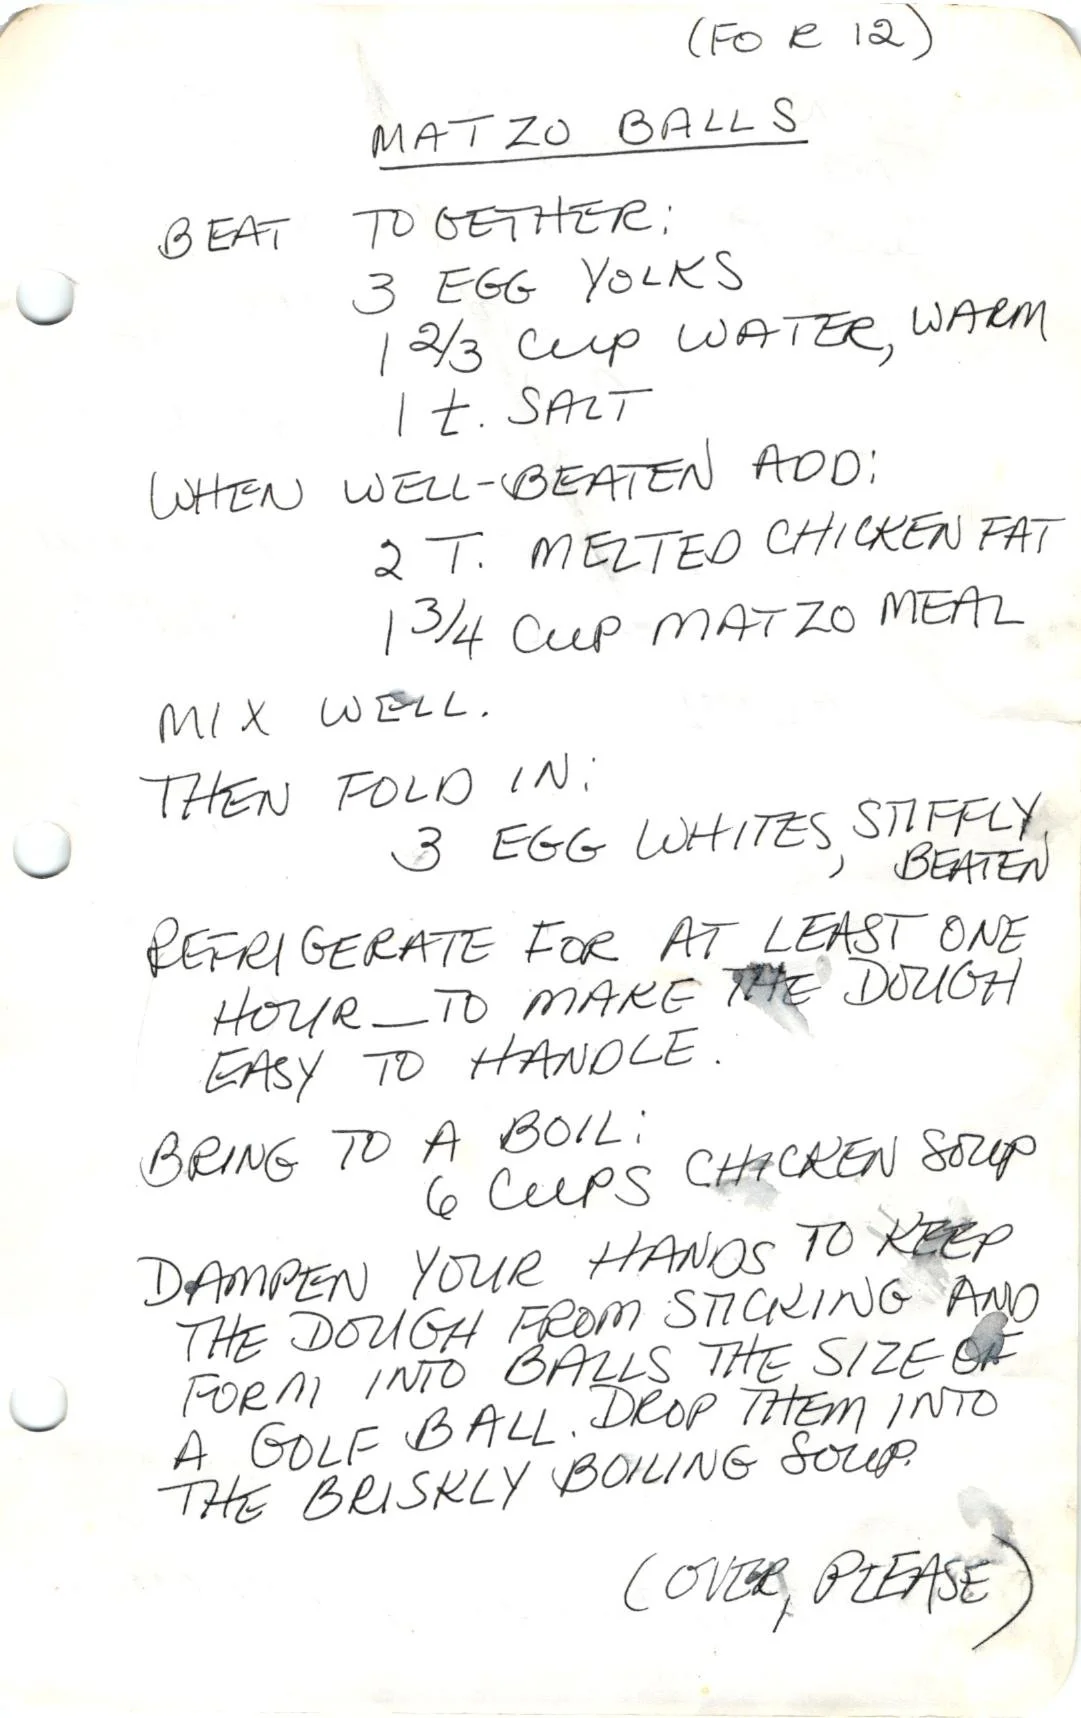 (FOR 12)
MATZO BALLS
BEAT TOGETHER:
3 EGG YOLKS
1 2/3 CUP WATER, WARM
1 t. SALT
WHEN WELL-BEATEN ADD:
2 T. MELTED CHICKEN FAT
1 3/4 CUP MATZO MEAL
MIX WELL.
THEN FOLD IN:
3 EGG WHITES, STIFFLY
BEATEN
REFRIGERATE FOR AT LEAST ONE
HOUR—TO MAKE THE DOUGH
EASY TO HANDLE.
BRING TO A BOIL:
6 CUPS CHICKEN SOUP
DAMPEN YOUR HANDS TO KEEP
THE DOUGH FROM STICKING AND
FORM INTO BALLS THE SIZE OF
A GOLF BALL. DROP THEM INTO
THE BRISKLY BOILING SOUP.
(OVER, PLEASE)